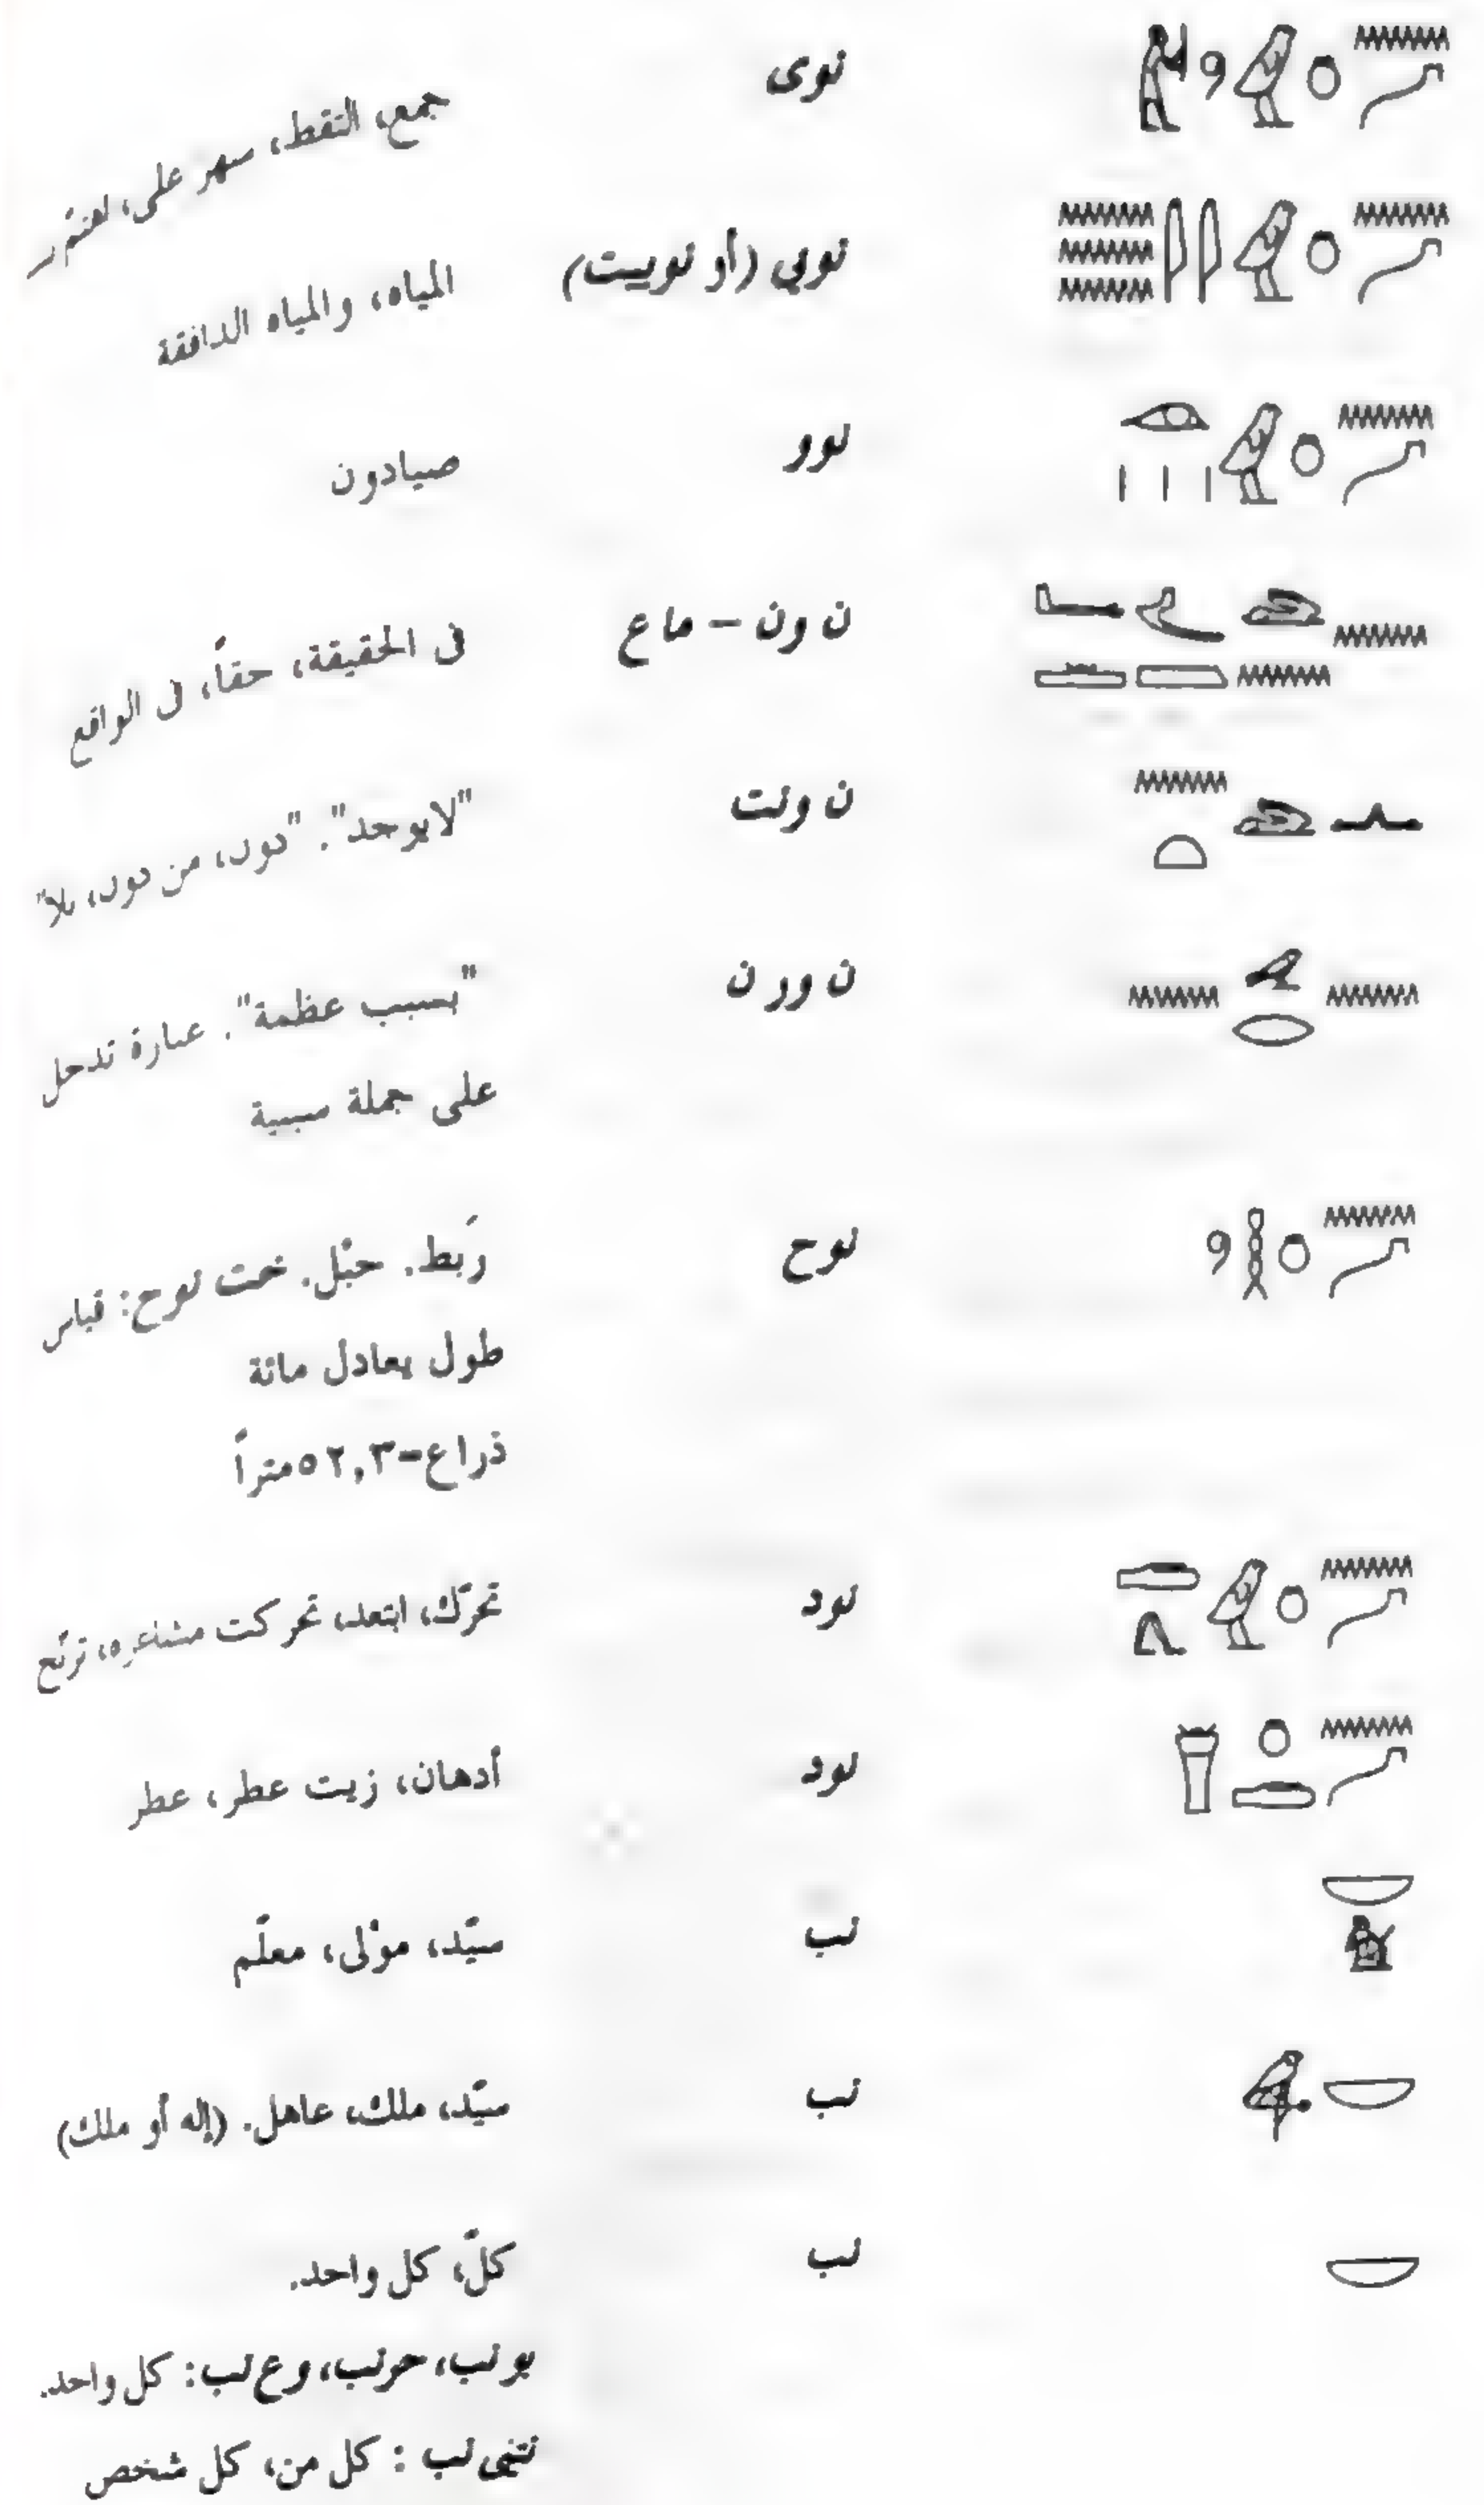 نوى جمع، التقط، سهر على، اهتمّ ر
نويي (أو نوييت) المياه، والمياه الدافقة
نوو صيادون
ن ون – ماع فى الحقيقة، حقاً، فى الواقع
ن ونت "لايوجد". "دون، من دون، بلا"
ن ور ن "بسبب عظمة". عبارة تدخل
على جملة سببية
نوح رَبط. حبْل. خت نوح: قياس
طول يعادل مائة
ذراع=٥٢,٣متراً
نود تحرّك، ابتعد، تحركت مشاعره، ترنّح
نود أدهان، زيت عطر، عطر
نب سيّد، موْلى، معلّم
نب سيّد، ملك، عاهل. (إله أو ملك)
نب كلّ، كل واحد.
بو نب، حرنب، وع نب: كل واحد.
نتى نب : كل من، كل شخص